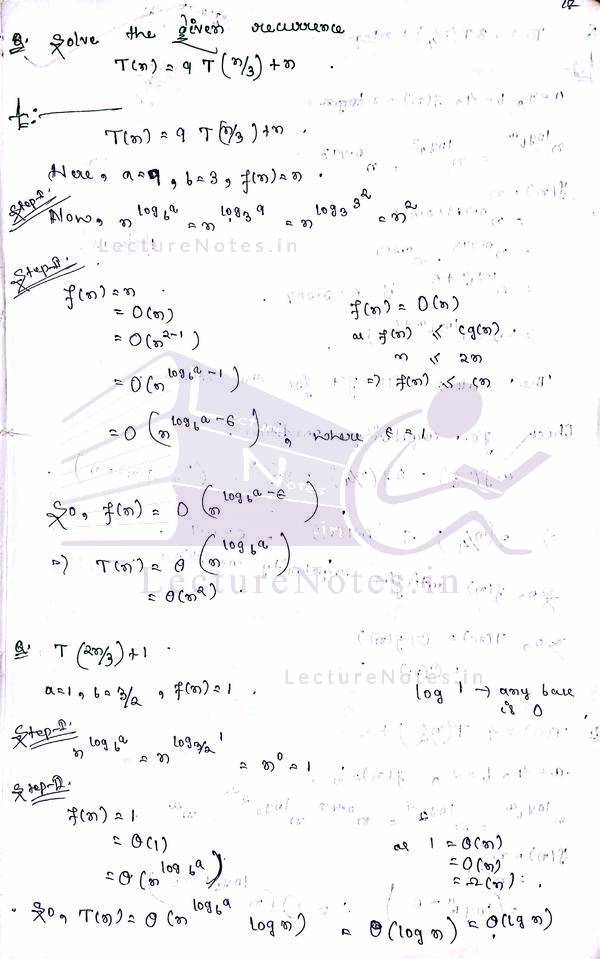 Q. Solve the given recurrence
T(n) = 9 T(n/3) + n .
T(n) = 9 T(n/3) + n .
Here, a=9, b=3, f(n)=n .
Step-I: Now, n^log_b a = n^log_3 9 = n^log_3 3^2 = n^2
LectureNotes.in
Step-II:
f(n) = n
= O(n)
= O(n^2-1)
= O(n^log_b a - 1)
= O(n^log_b a - ϵ), where ϵ=1 .
f(n) = O(n)
as f(n) ≤ cg(n) .
n ≤ 2n
=> f(n) ≤ cn .
So, f(n) = O(n^log_b a - ϵ) .
=> T(n) = θ(n^log_b a) .
LectureNotes.in
= θ(n^2) .
Q. T(2n/3) + 1 .
LectureNotes.in
a=1, b=3/2, f(n)=1 .
log 1 → any base
is 0
Step-I: n^log_b a = n^log_3/2 1 = n^0 = 1 .
Step-II:
f(n) = 1
= θ(1)
= θ(n^log_b a)
as 1 = θ(n)
= O(n)
= Ω(n) .
So, T(n) = θ(n^log_b a log n) = θ(log n) = θ(lg n)